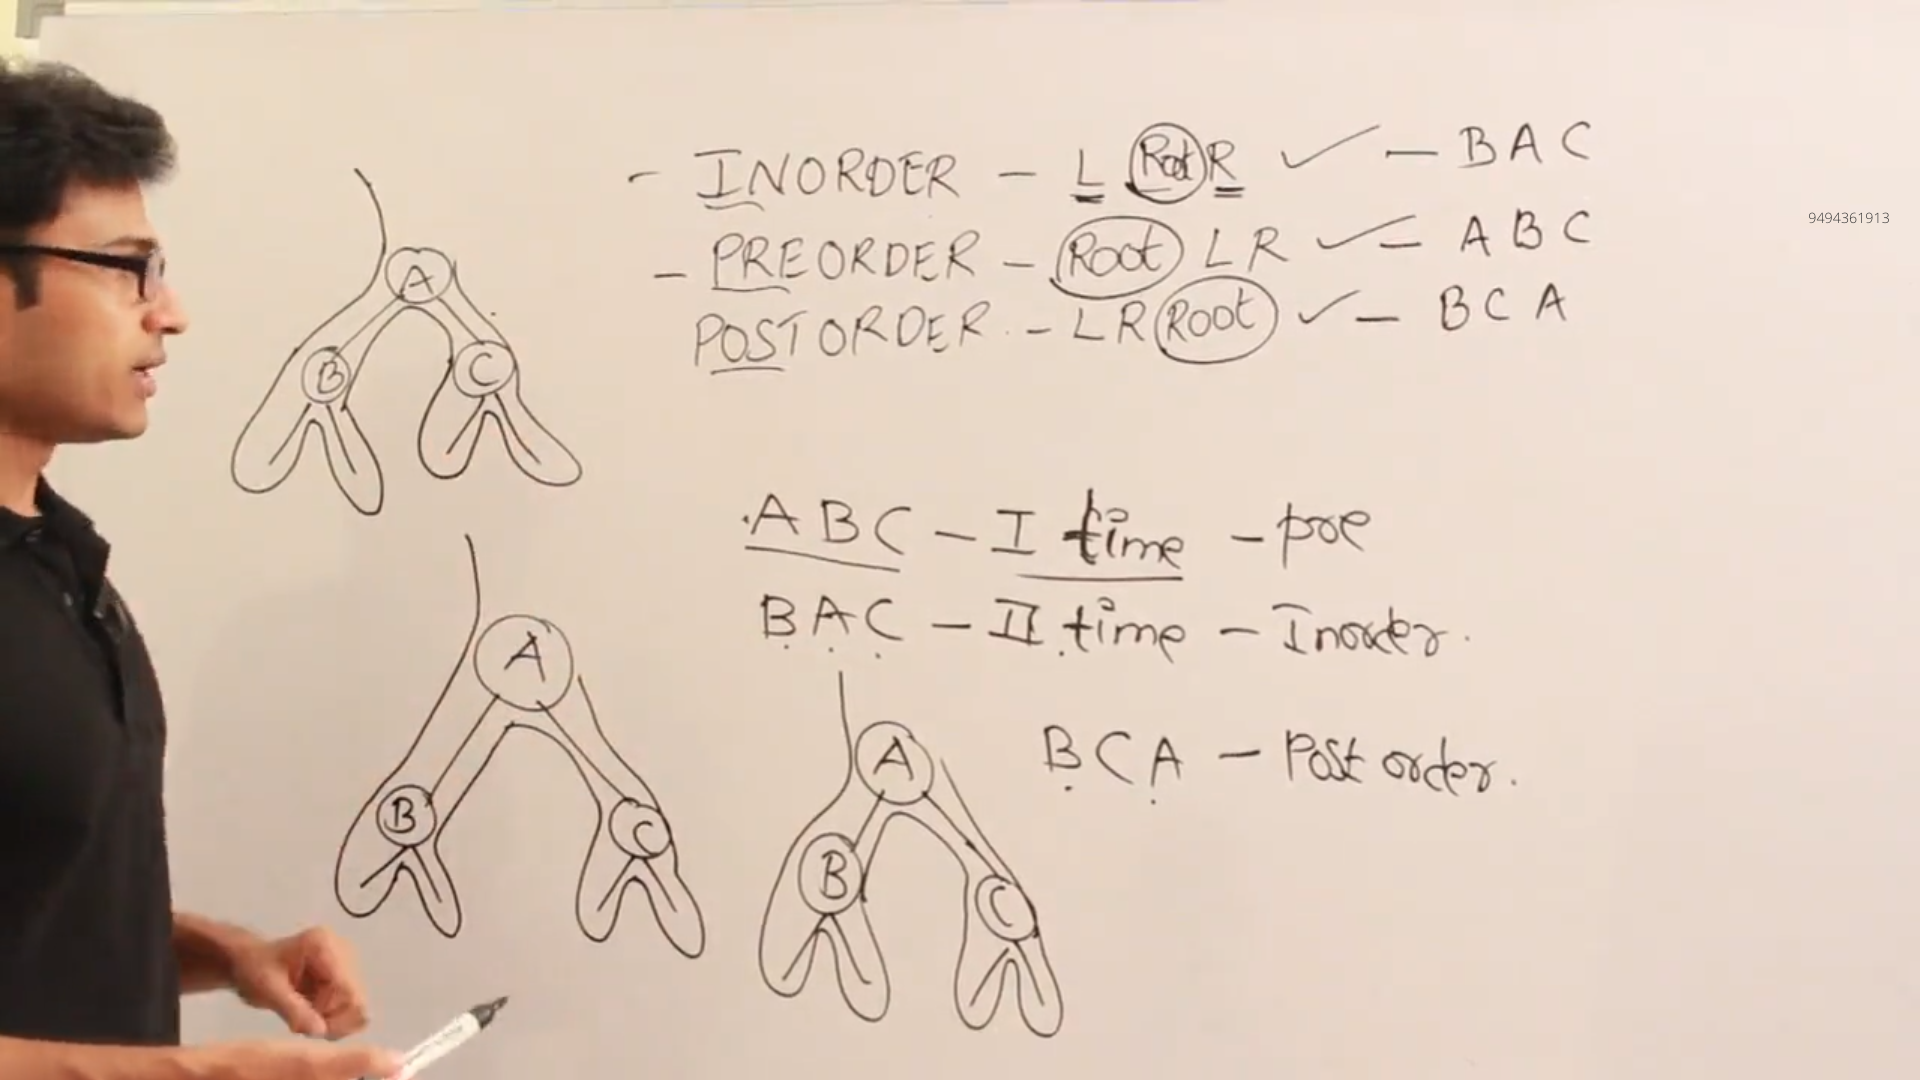 - INORDER - L Root R ✓ - BAC
- PREORDER - Root L R ✓ - A B C
POSTORDER - L R Root ✓ - B C A
9494361913
A
B C
ABC - I time - pre
BAC - II time - Inorder.
A
B C
BCA - Post order.
A
B C